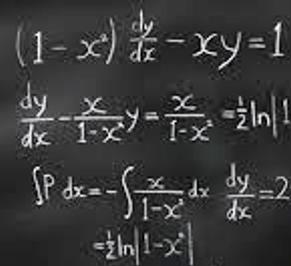 (1 - x²) dy/dx - xy = 1
dy/dx - x/1-x² y = x/1-x² = ½ ln|1
∫P dx = -∫ x/1-x² dx dy/dx = 2
= ½ ln|1-x²|